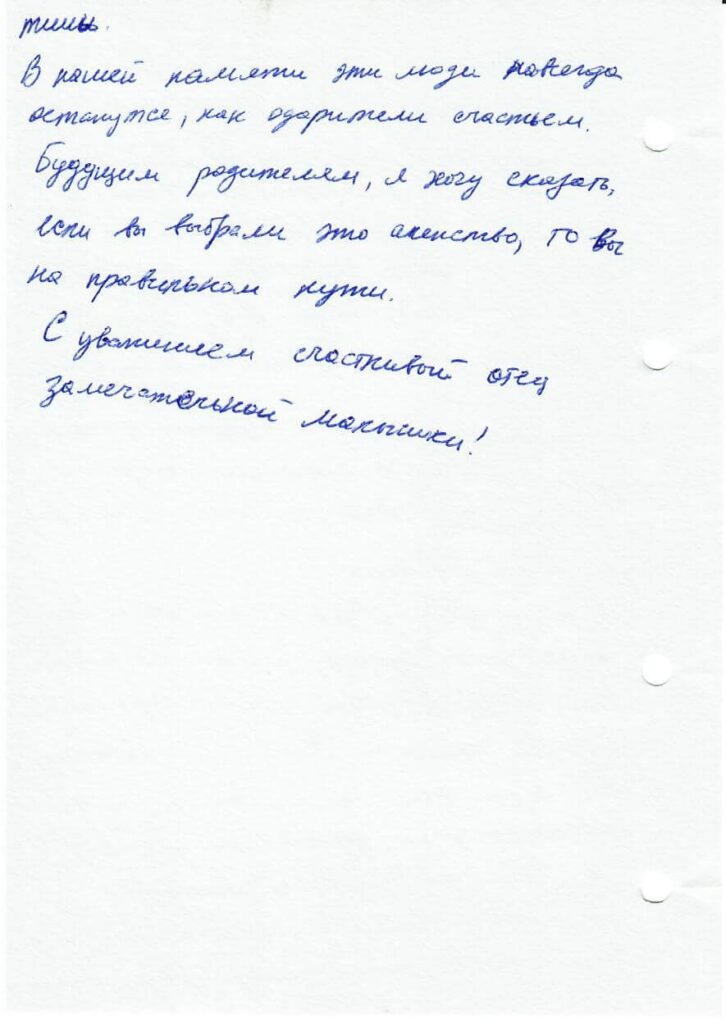 тины.
В нашей памяти эти люди навсегда
останутся, как одарители счастьем.
Будущим родителям, я хочу сказать,
если вы выбрали это агенство, то Вы
на правильном пути.
С уважением счастливый отец
замечательной малышки!